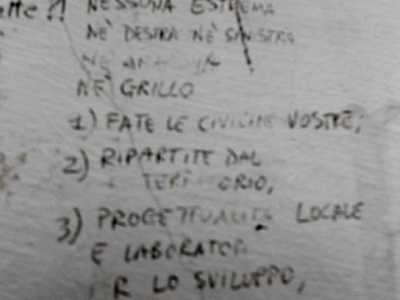 NESSUNA ESTREMA
NÈ DESTRA NÈ SINISTRA
NÈ
NÈ GRILLO
1) FATE LE VOSTRE;
2) RIPARTITE DAL
TERRITORIO,
3) PROGETTUALITÀ LOCALE
E LABORATOR
R LO SVILUPPO,